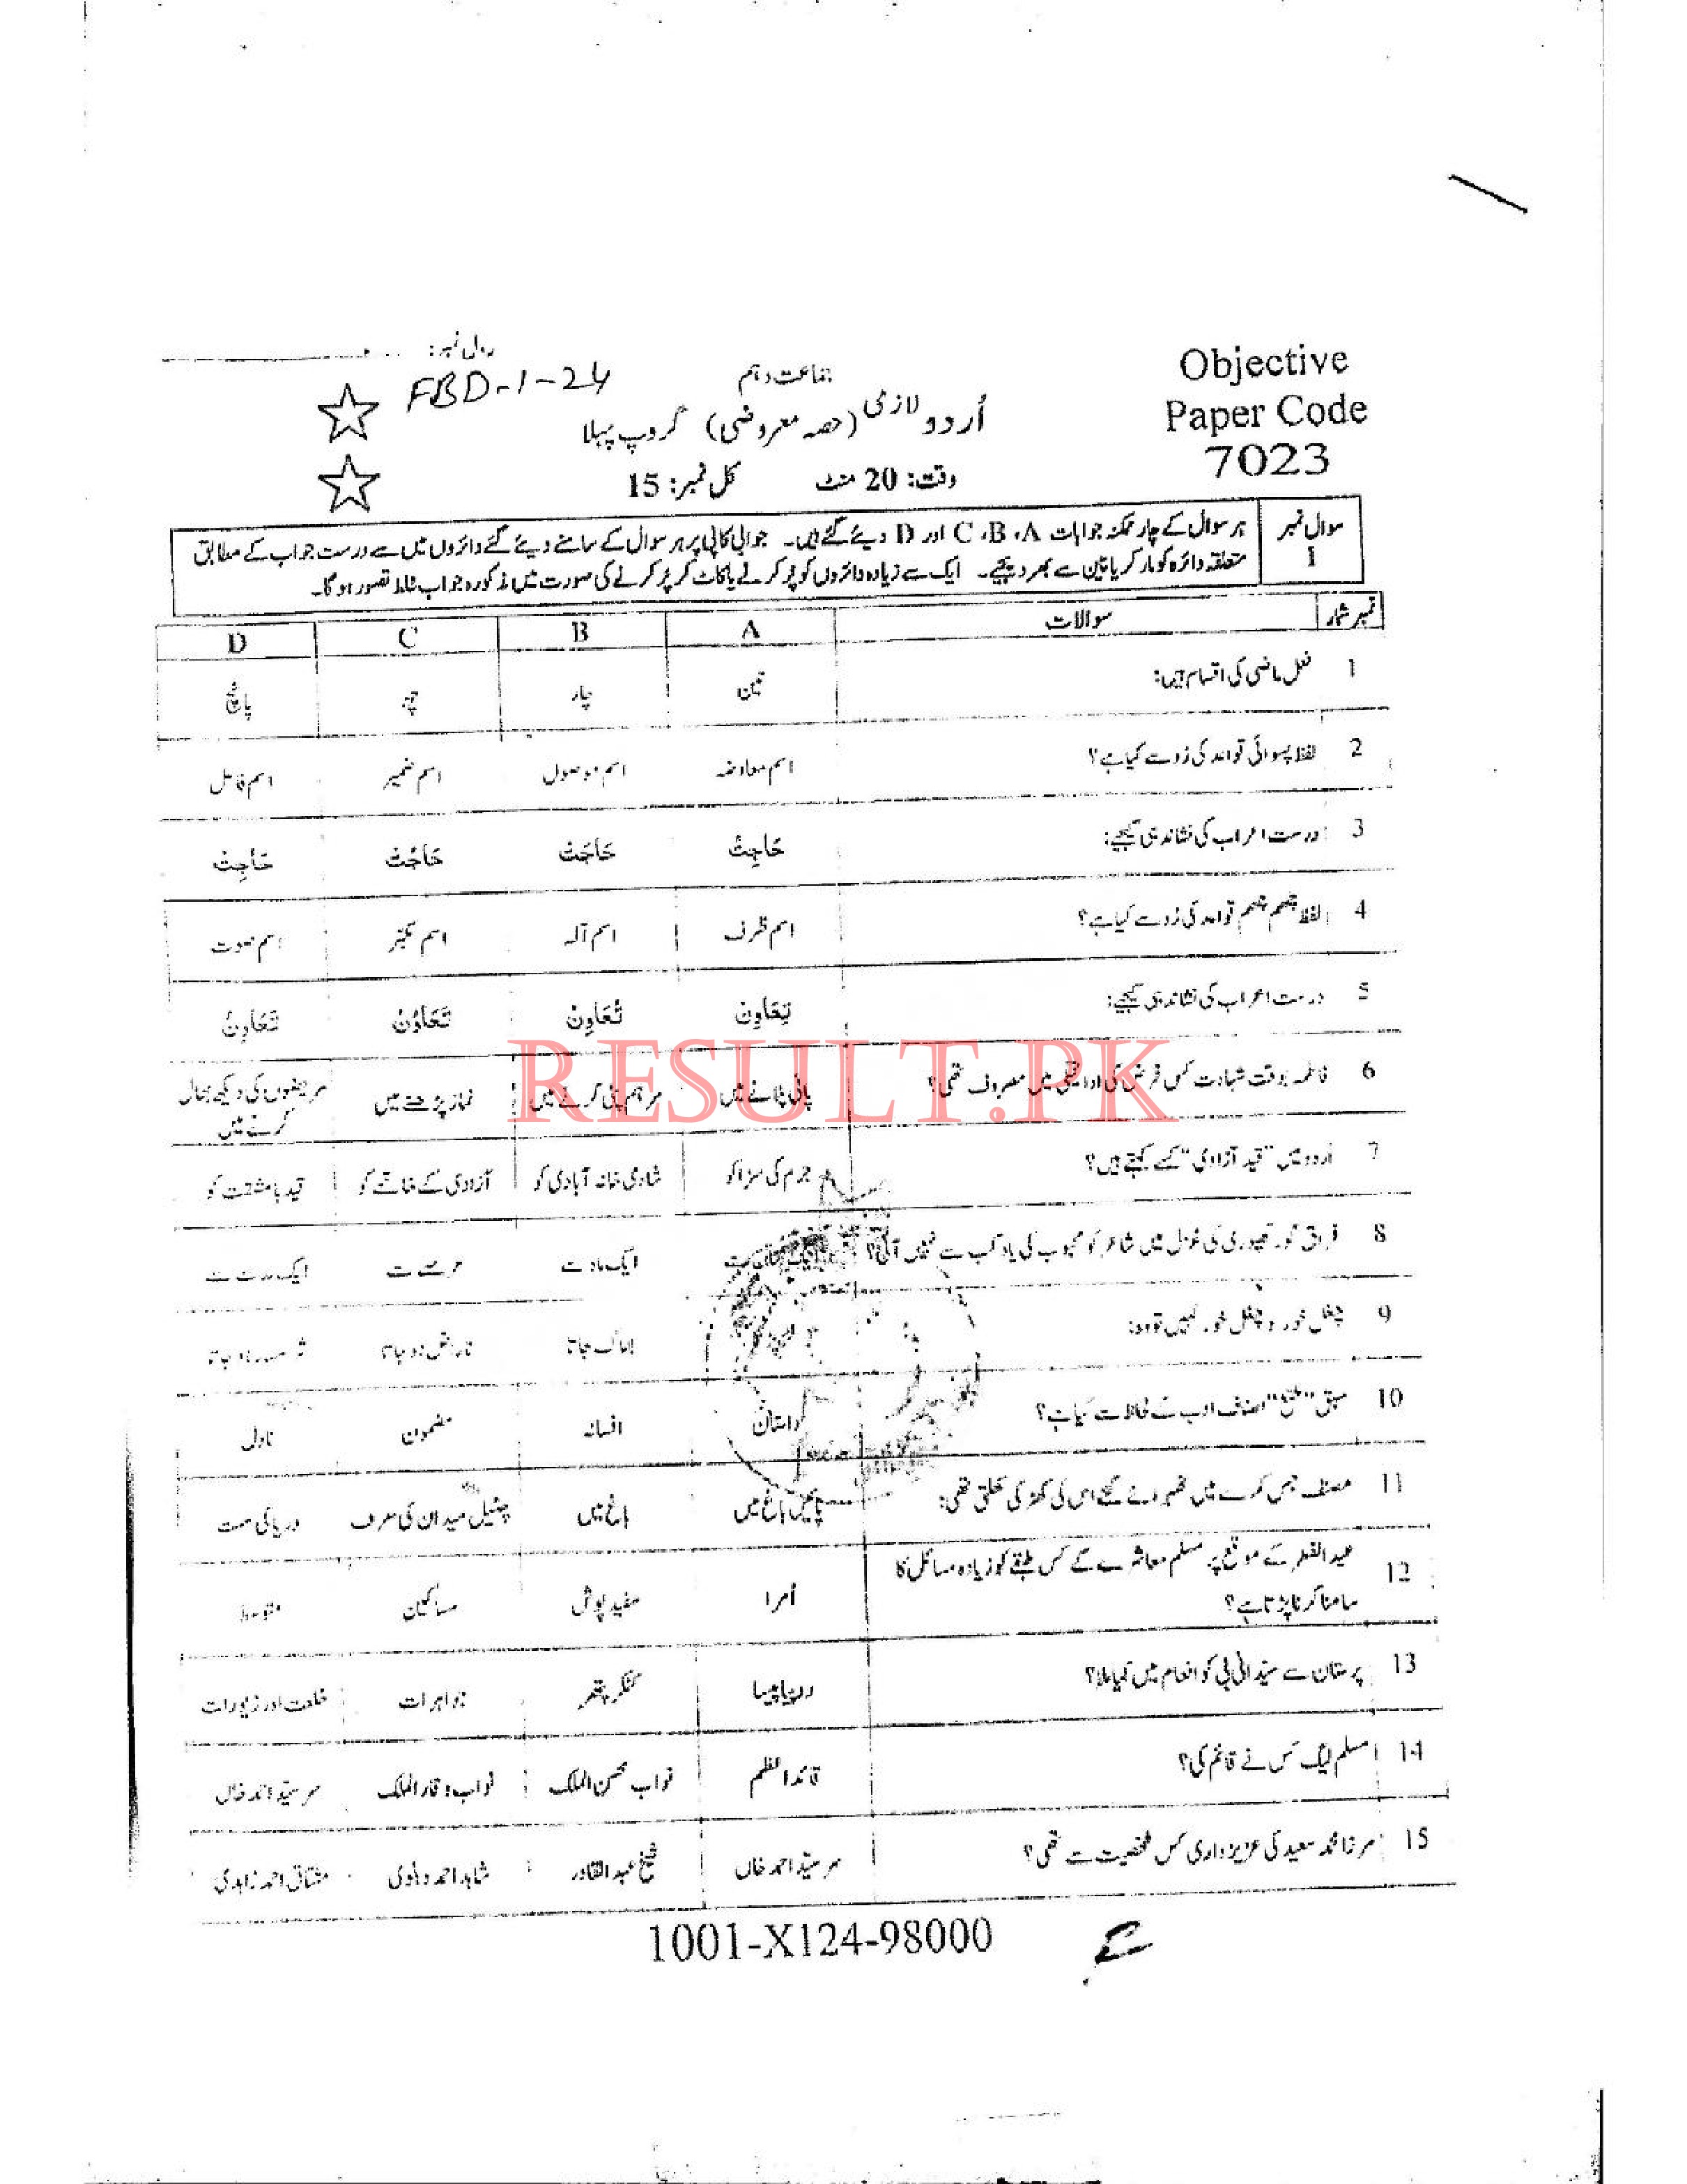 رول نمبر:
FBD-1-24
جماعت دہم
Objective
Paper Code
7023
اُردو لازمی (حصہ معروضی) گروپ پہلا
وقت: 20 منٹ کل نمبر: 15
سوال نمبر 1
ہر سوال کے چار ممکنہ جوابات A، B، C اور D دیئے گئے ہیں۔ جوابی کاپی پر ہر سوال کے سامنے دیئے گئے دائروں میں سے درست جواب کے مطابق
متعلقہ دائرہ کو مارکر یا پین سے بھر دیجیے۔ ایک سے زیادہ دائروں کو پُر کرنے یا کاٹ کر پُر کرنے کی صورت میں مذکورہ جواب غلط تصور ہو گا۔
نمبر شمار سوالات A B C D
1 فعل ماضی کی اقسام ہیں: تین چار چھ پانچ
2 لفظ پسوائی قواعد کی رُو سے کیا ہے؟ اسم معاوضہ اسم موصول اسم ضمیر اسم فاعل
3 درست اعراب کی نشاندہی کیجیے: حَاجِتْ حَاجَتْ حَاجُتْ
4 لفظ چھم چھم قواعد کی رُو سے کیا ہے؟ اسم ظرف اسم آلہ اسم مکبّر اسم صوت
5 درست اعراب کی نشاندہی کیجیے: تِعَاوِن تُعَاوِنْ تَعَاوُنْ تَعَاوِنْ
6 فاطمہ بوقت شہادت کس فرض کی ادائیگی میں مصروف تھی؟ پانی پلانے میں مرہم پٹی کرنے میں نماز پڑھنے میں مریضوں کی دیکھ بھال
کرنے میں
RESULT.PK
7 اُردو میں "قید آزادی" کسے کہتے ہیں؟ جرم کی سزا کو شادی خانہ آبادی کو آزادی کے خاتمے کو قید بامشقت کو
8 فراق گورکھپوری کی غزل میں شاعر کو محبوب کی یاد کب سے نہیں آئی؟ ایک ماہ سے عرصے سے ایک مدت سے
9 چغل خور کو چغل خور کہیں تو وہ: بھاگ جاتا ناراض ہو جاتا شرمندہ ہو جاتا
10 سبق "ملمع" اصناف ادب کے لحاظ سے کیا ہے؟ داستان افسانہ مضمون ناول
11 مصنف جس کمرے میں ٹھہرائے گئے اس کی کھڑکی کھلتی تھی: پائیں باغ میں باغ میں چٹیل میدان کی طرف دریا کی سمت
12 عید الفطر کے موقع پر مسلم معاشرے کے کس طبقے کو زیادہ مسائل کا
سامنا کرنا پڑتا ہے؟ اُمرا سفید پوش مساکین متوسط
13 پرستان سے سیّدانی بی کو انعام میں کیا ملا؟ روپیا پیسا کنکر پتھر جواہرات خلعت اور زیورات
14 مسلم لیگ کس نے قائم کی؟ قائداعظم نواب محسن الملک نواب وقار الملک سرسیّد احمد خاں
15 مرزا محمد سعید کی عزیز داری کس شخصیت سے تھی؟ سرسیّد احمد خاں شیخ عبدالقادر شاہد احمد دہلوی مشتاق احمد زاہدی
1001-X124-98000